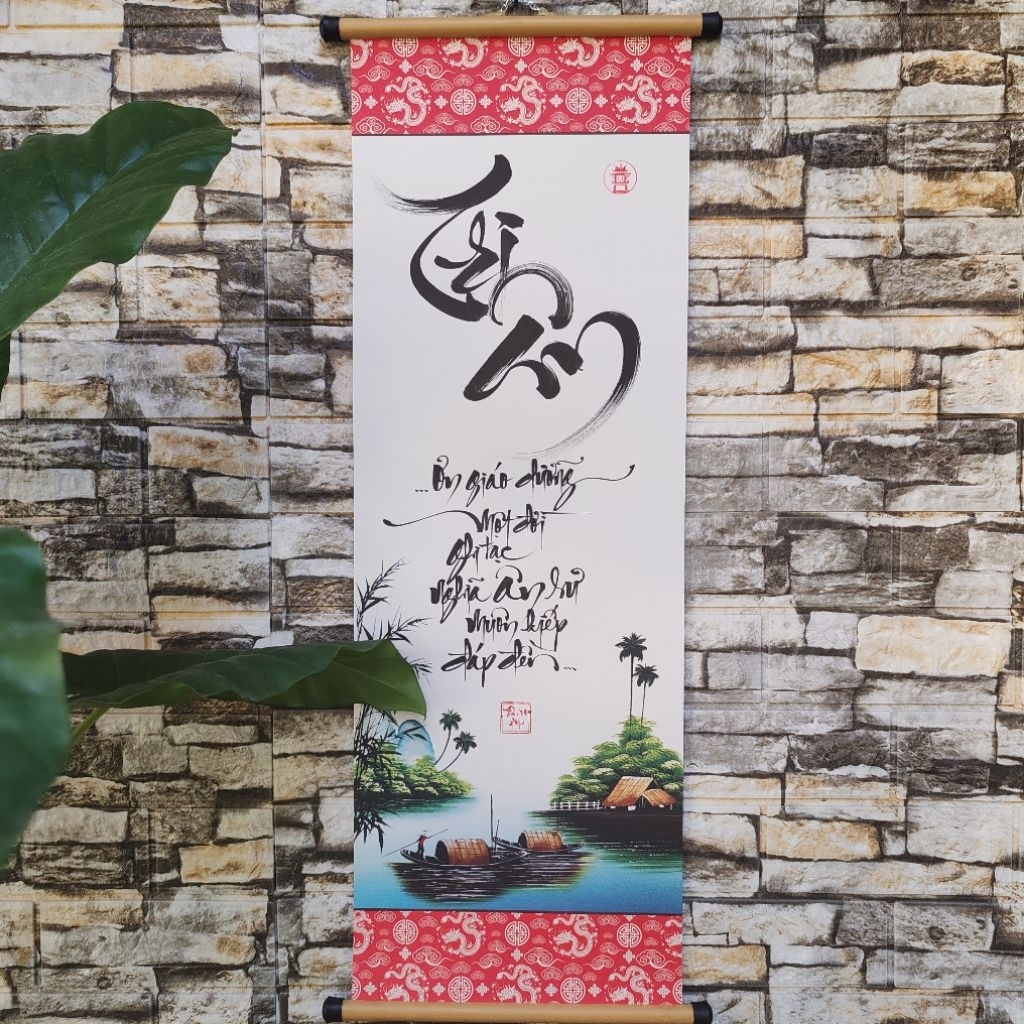 Tri
Ân
...Ơn giáo dưỡng
một đời
ghi tạc
nghĩa ân sư
muôn kiếp
đáp đền...